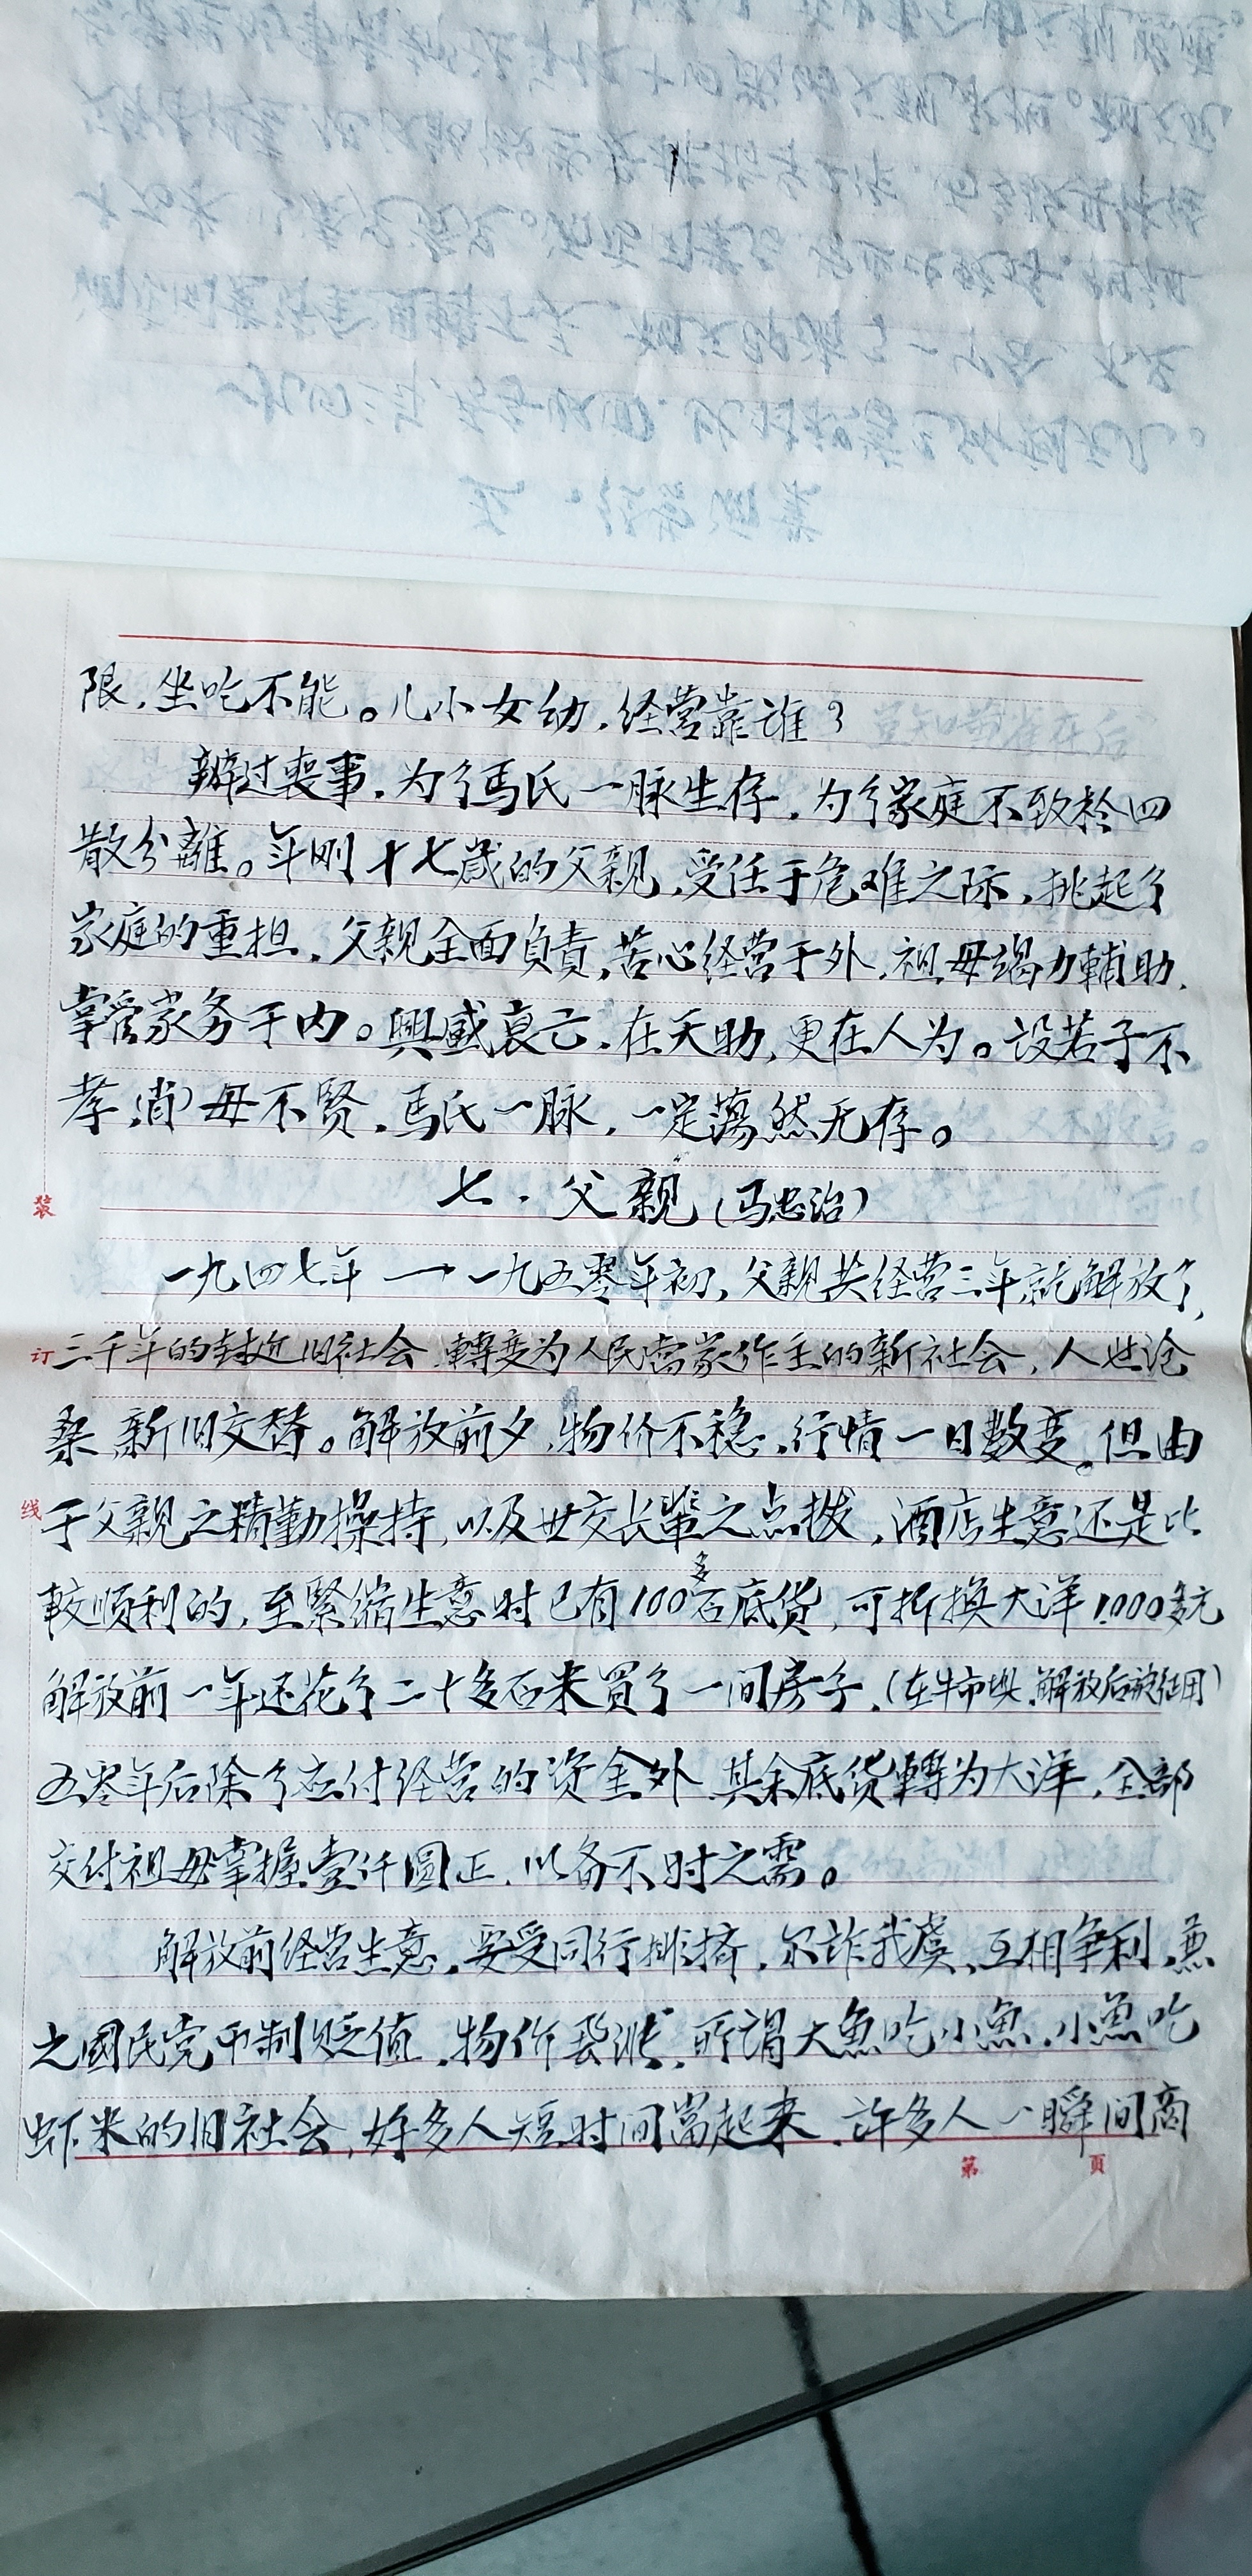 限，坐吃不能。儿小女幼，经营靠谁？
辦过喪事，为了馬氏一脉生存，为了家庭不致於四
散分離。年刚十七歲的父親，受任于危难之际，挑起了
家庭的重担，父親全面負責，苦心经营于外，祖母竭力輔助，
掌管家务于内。興盛衰亡，在天助，更在人为。设若子不
孝，母不贤，馬氏一脉，一定蕩然无存。
七．父親（馬忠治）
一九四七年一一九五零年初，父親共经营三年就解放了，
三千年的封建旧社会，轉变为人民當家作主的新社会，人世沧
桑，新旧交替。解放前夕，物价不稳，行情一日数变。但由
于父親之精勤操持，以及世交长輩之点拨，酒店生意还是比
較顺利的，至緊缩生意时已有100多石底货，可折换大洋1000多元
解放前一年还花了二十多石米買了一间房子，（在牛市坝，解放后被征用）
五零年后除了应付经营的资金外，其余底货轉为大洋，全部
交付祖母掌握，壹仟圆正，以备不时之需。
解放前经营生意，要受同行排挤，尔诈我虞，互相争利，兼
之國民党币制贬值，物价暴涨，所谓大魚吃小魚，小魚吃
虾米的旧社会，好多人短时间富起来，许多人一瞬间商
装
订
线
第 頁